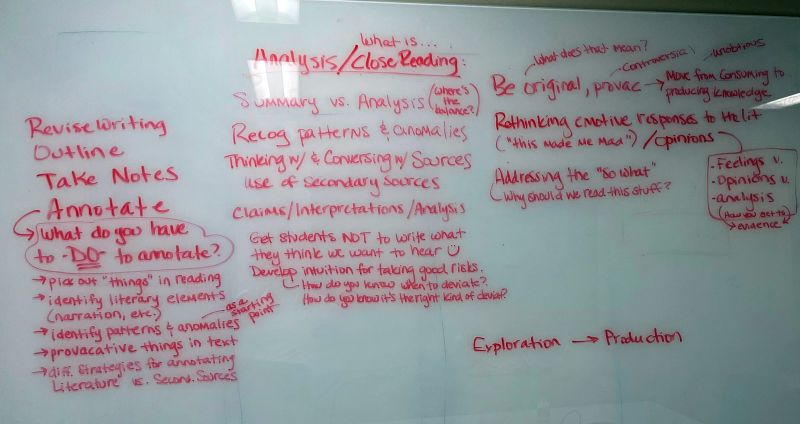 Revise Writing
Outline
Take Notes
Annotate
What do you have
to -DO- to annotate?
→ pick out "things" in reading
→ identify literary elements
(narration, etc.)
→ identify patterns & anomalies
as a
starting
point
→ provacative things in text
→ diff. strategies for annotating
Literature vs. Second. Sources
What is...
Analysis/Close Reading:
Summary vs. Analysis (where's
the
balance?)
Recog patterns & anomalies
Thinking w/ & Conversing w/ Sources
use of Secondary Sources
Claims/Interpretations/Analysis
Get students NOT to write what
they think we want to hear
Develop intuition for taking good risks.
How do you know when to deviate?
How do you know it's the right kind of deviat?
What does that mean?
controversial
ambitious
Be original, provac → Move from consuming to
producing knowledge
Rethinking emotive responses to the lit
("this made me mad") / opinions
- Feelings v.
- Opinions v.
- analysis
(How you get to)
→ evidence
Addressing the "So what"
Why should we read this stuff?
Exploration → Production